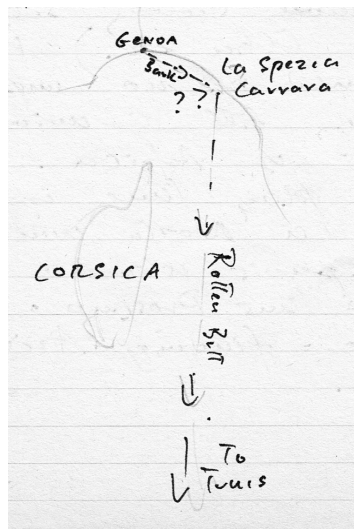 GENOA
Bark
La Spezia
Carrara
? ?
CORSICA
Rotten Butt
To
Tunis